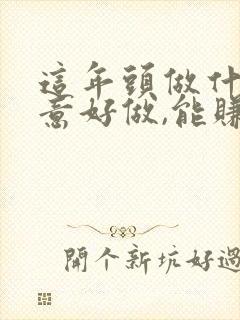 這年頭做什
意好做,能賺
開个新坑好過